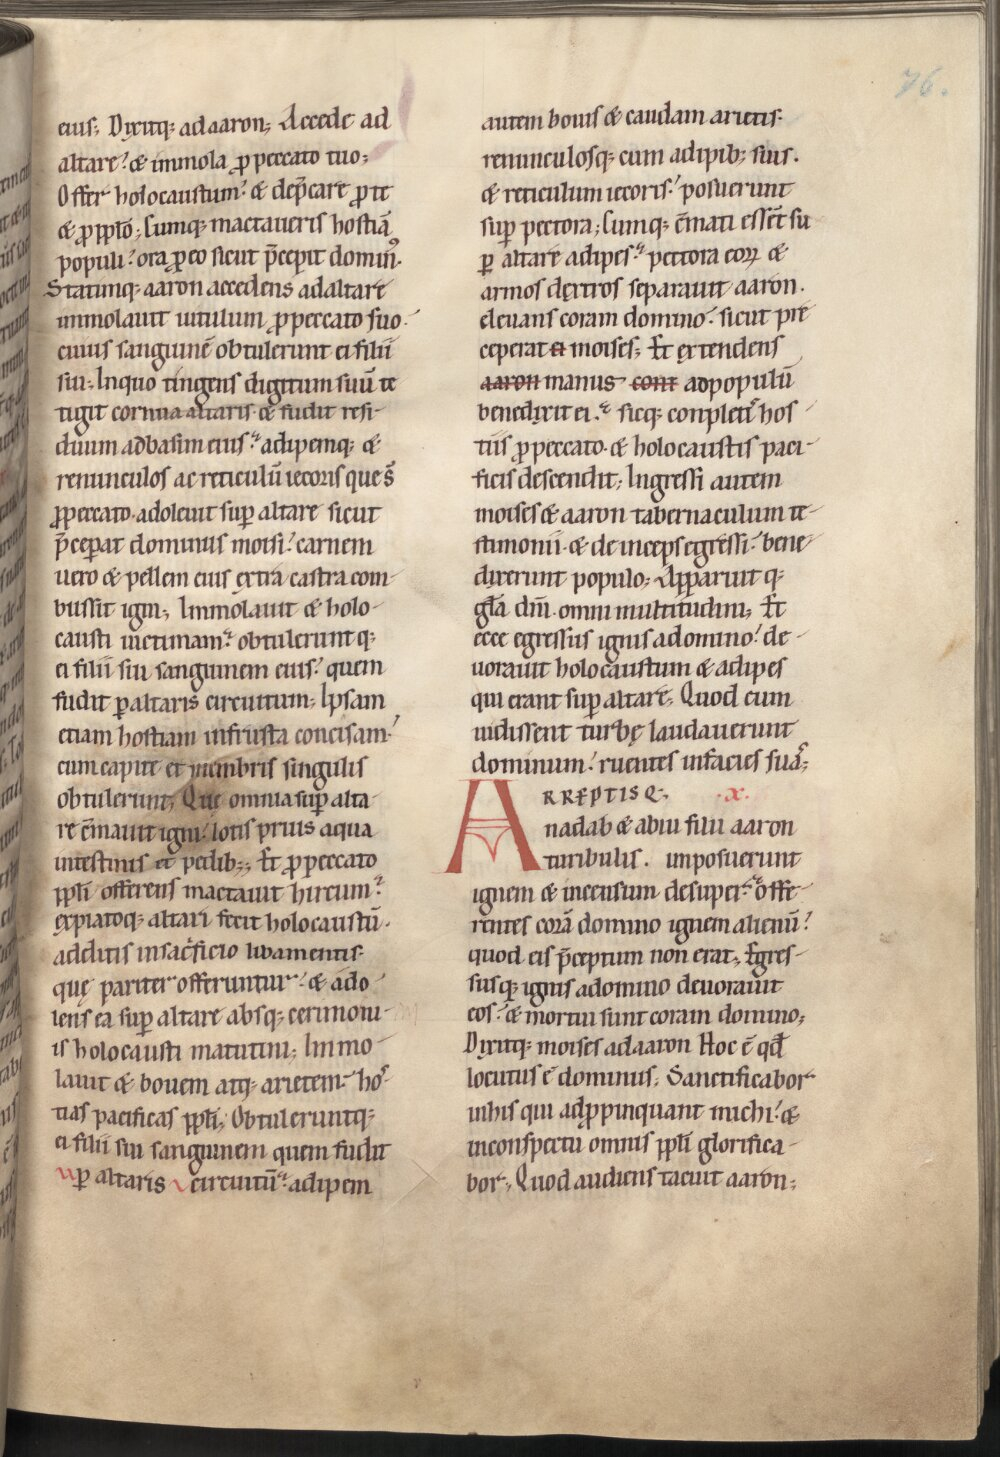 76.
eius; Dixitq; ad aaron; Accede ad
altare? & immola ꝓ peccato tuo;
Offer holocaustum? & dep̄care ꝓ te
& ꝓ ipplō; Cumq; mactaueris hostiā
populi? ora ꝓ eo sicut p̄cepit domin᷒.
Statimq; aaron accedens ad altare
immolauit uitulum ꝓ peccato suo.
cuius sanguinē obtulerunt ei filii
sui; In quo tingens digitum suū te
tigit cornua altaris & fudit resi-
duum ad basim eius? adipemq; &
renunculos ac reticulū iecoris que s̄
ꝓ peccato adoleuit suꝑ altare sicut
p̄ceꝑat dominus moisi? carnem
uero & pellem eius extra castra com-
bussit igni; Immolauit & holo-
causti uictimam? obtulerunt q;
ei filii sui sanguinem eius? quem
fudit ꝑ altaris circuitum; Ipsam
etiam hostiam in frusta concisam
cum capite et membris singulis
obtulerunt; Que omnia suꝑ alta
re c̄mauit igni? lotis prius aqua
intestinis et pedib;; Et ꝓ peccato
ppl̄i offerens mactauit hircum?
expiatoq; altari fecit holocaustū.
additis in sac̄ficio libamentis
quę pariter offeruntur? & ado
lens ea suꝑ altare absq; cerimoni-
is holocausti matutini; Immo-
lauit & bouem atq; arietem? hos-
tias pacificas ppl̄i; Obtuleruntq;
ei filii sui sanguinem quem fudit
ꝑ altaris circuitū? adipem
autem bouis & caudam arietis.
renunculosq; cum adipib; suis.
& reticulum iecoris? posuerunt
suꝑ pectora; Cumq; c̄mati essēt su
ꝑ altare adipes? pectora eoꝝ &
armos dextros separauit aaron.
eleuans coram domino? sicut pre
ceperat ei moises; Et extendens
aaron manus cont ad populū
benedixit ei? sicq; conpletis hos
tiis ꝓ peccato & holocaustis paci-
ficis descendit; Ingressi autem
moises & aaron tabernaculum te-
stimonii & deinceps egressi? bene-
dixerunt populo; Apparuit q;
gl̄a dn̄i omni multitudini; Et
ecce egressus ignis a domino? de-
uorauit holocaustum & adipes
qui erant suꝑ altare; Quod cum
uidissent turbę laudauerunt
dominum? ruentes in facies suas;
ARREPTISQ; x.
nadab & abiu filii aaron
turibulis. imposuerunt
ignem & incensum desuper? offe-
rentes corā domino ignem alienū?
quod eis p̄ceptum non erat; Egres-
susq; ignis a domino deuorauit
eos? & mortui sunt coram domino;
Dixitq; moises ad aaron Hoc ē qd̄
locutus ē dominus; Sanctificabor
in his qui adꝓpinquant michi? &
in conspectu omnis ppl̄i glorifica-
bor; Quod audiens tacuit aaron;